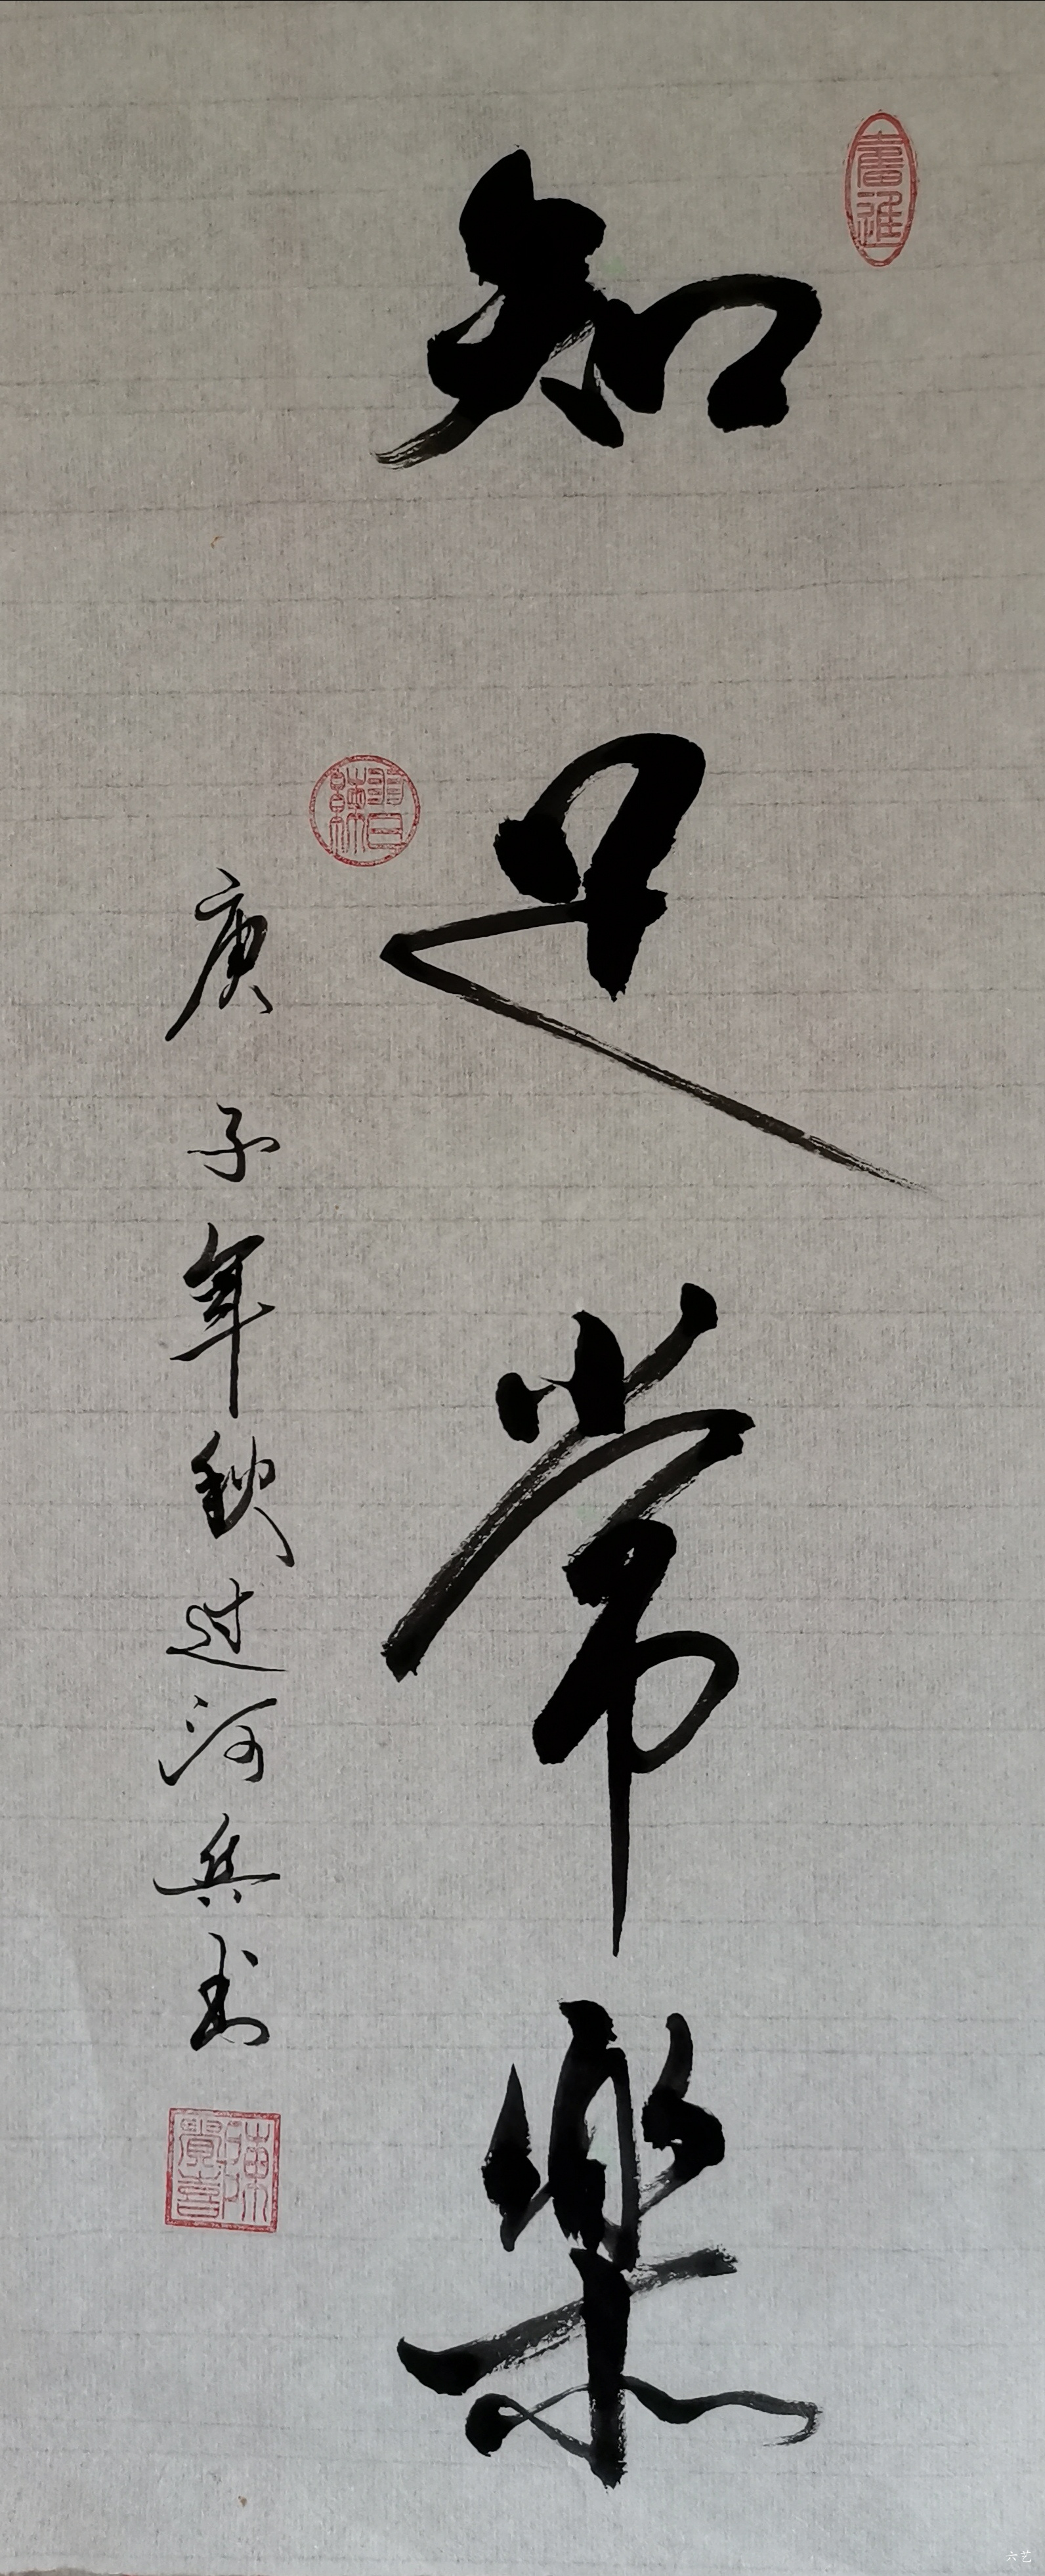 知足常樂
庚子年秋过河兵书
六艺